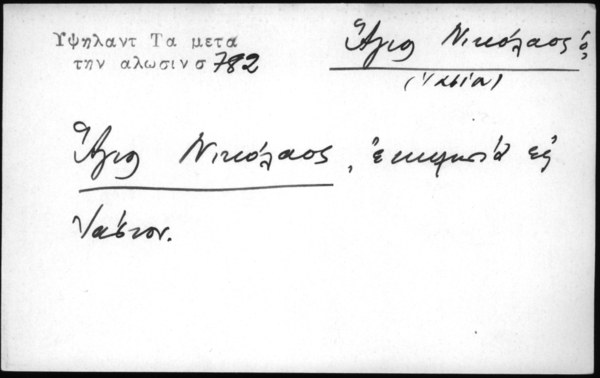 Υψηλαντ Τα μετα
την αλωσινσ 782
Ἅγιος Νικόλαος ὁ,
(Ἰασίον)
Ἅγιος Νικόλαος, ἐκκλησία εἰς
Ἰάσιον.